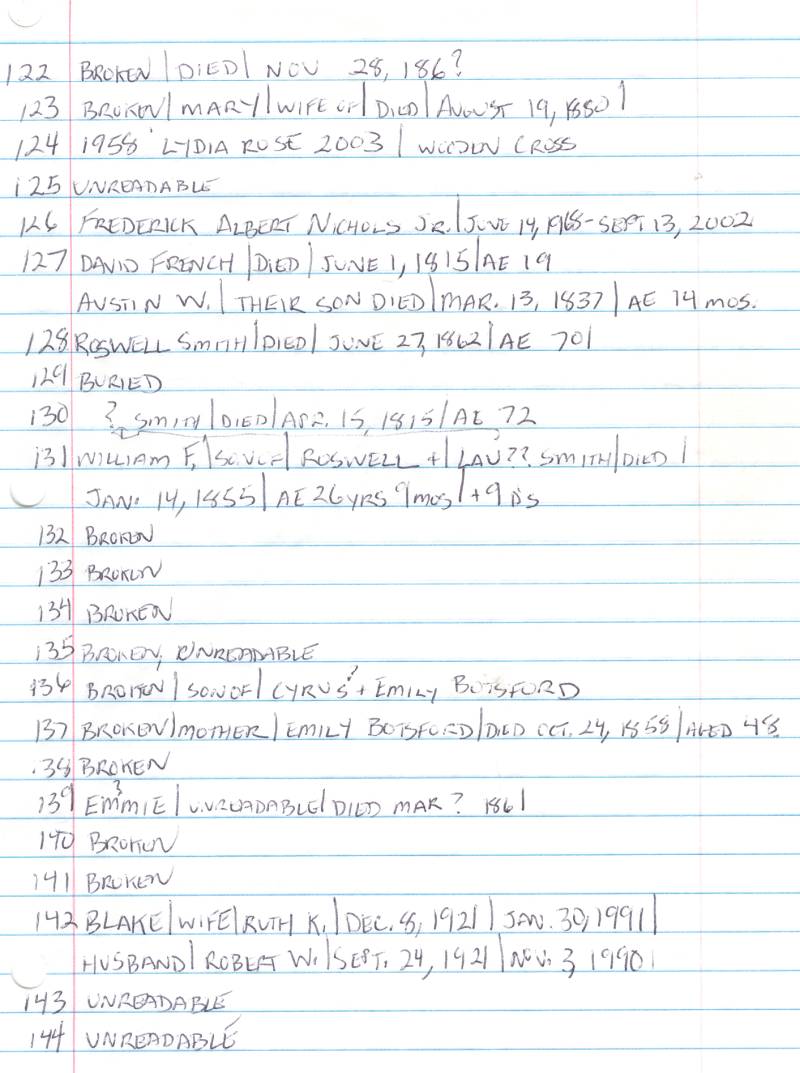 122 BROKEN | DIED | NOV 28, 186?
123 BROKEN | MARY | WIFE OF | DIED | AUGUST 19, 1880 |
124 1958 LYDIA RUSE 2003 | WOODEN CROSS
125 UNREADABLE
126 FREDERICK ALBERT NICHOLS JR. | JUNE 14, 1968 - SEPT. 13, 2002
127 DAVID FRENCH | DIED | JUNE 1, 1815 | AE 19
AUSTIN W. | THEIR SON DIED | MAR. 13, 1837 | AE 14 MOS.
128 ROSWELL SMITH | DIED | JUNE 27, 1862 | AE 70 |
129 BURIED
130 ? SMITH | DIED | APR. 15, 1815 | AE 72
131 WILLIAM F. | SON OF | ROSWELL + | LAU?? SMITH | DIED |
JAN. 14, 1855 | AE 26 YRS 9 MOS | + 9 D'S
132 BROKEN
133 BROKEN
134 BROKEN
135 BROKEN, UNREADABLE
136 BROKEN | SON OF | CYRUS? + EMILY BOTSFORD
137 BROKEN | MOTHER | EMILY BOTSFORD | DIED OCT. 24, 1858 | AGED 48
138 BROKEN
139 EMMIE ? | UNREADABLE | DIED MAR ? 1861
140 BROKEN
141 BROKEN
142 BLAKE | WIFE | RUTH K. | DEC. 8, 1921 | JAN. 30, 1991 |
HUSBAND | ROBERT W. | SEPT. 24, 1921 | NOV. 3, 1990 |
143 UNREADABLE
144 UNREADABLE